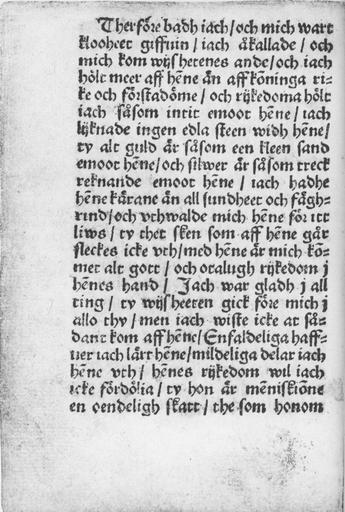 Therföre badh iach/och mich wart
klooheet giffuin/iach åkallade/och
mich kom wijshetenes ande/och iach
hölt meer aff hēne än aff kōninga ri-
ke och förstadöme/och rijkedoma hölt
iach såsom intit emoot hēne/iach
lijknade ingen edla steen widh hēne/
ty alt guld är såsom een kleen sand
emoot hēne/och silwer är såsom treck
reknande emoot hēne/iach hadhe
hēne kärane än all sundheet och fägh-
rind/och vthwalde mich hēne för itt
liws/ty thet sken som aff hēne går
sleckes icke vth/med hēne är mich kō-
met alt gott/och otalugh rijkedom j
hēnes hand/Jach war gladh j all
ting/ty wijsheeten gick före mich j
allo thy/men iach wiste icke at så-
dant kom aff hēne/Enfaldeliga haff-
uer iach lärt hēne/mildeliga delar iach
hēne vth/hēnes rijkedom wil iach
icke fördölia/ty hon är mēniskiōne
en oendeligh skatt/the som honom